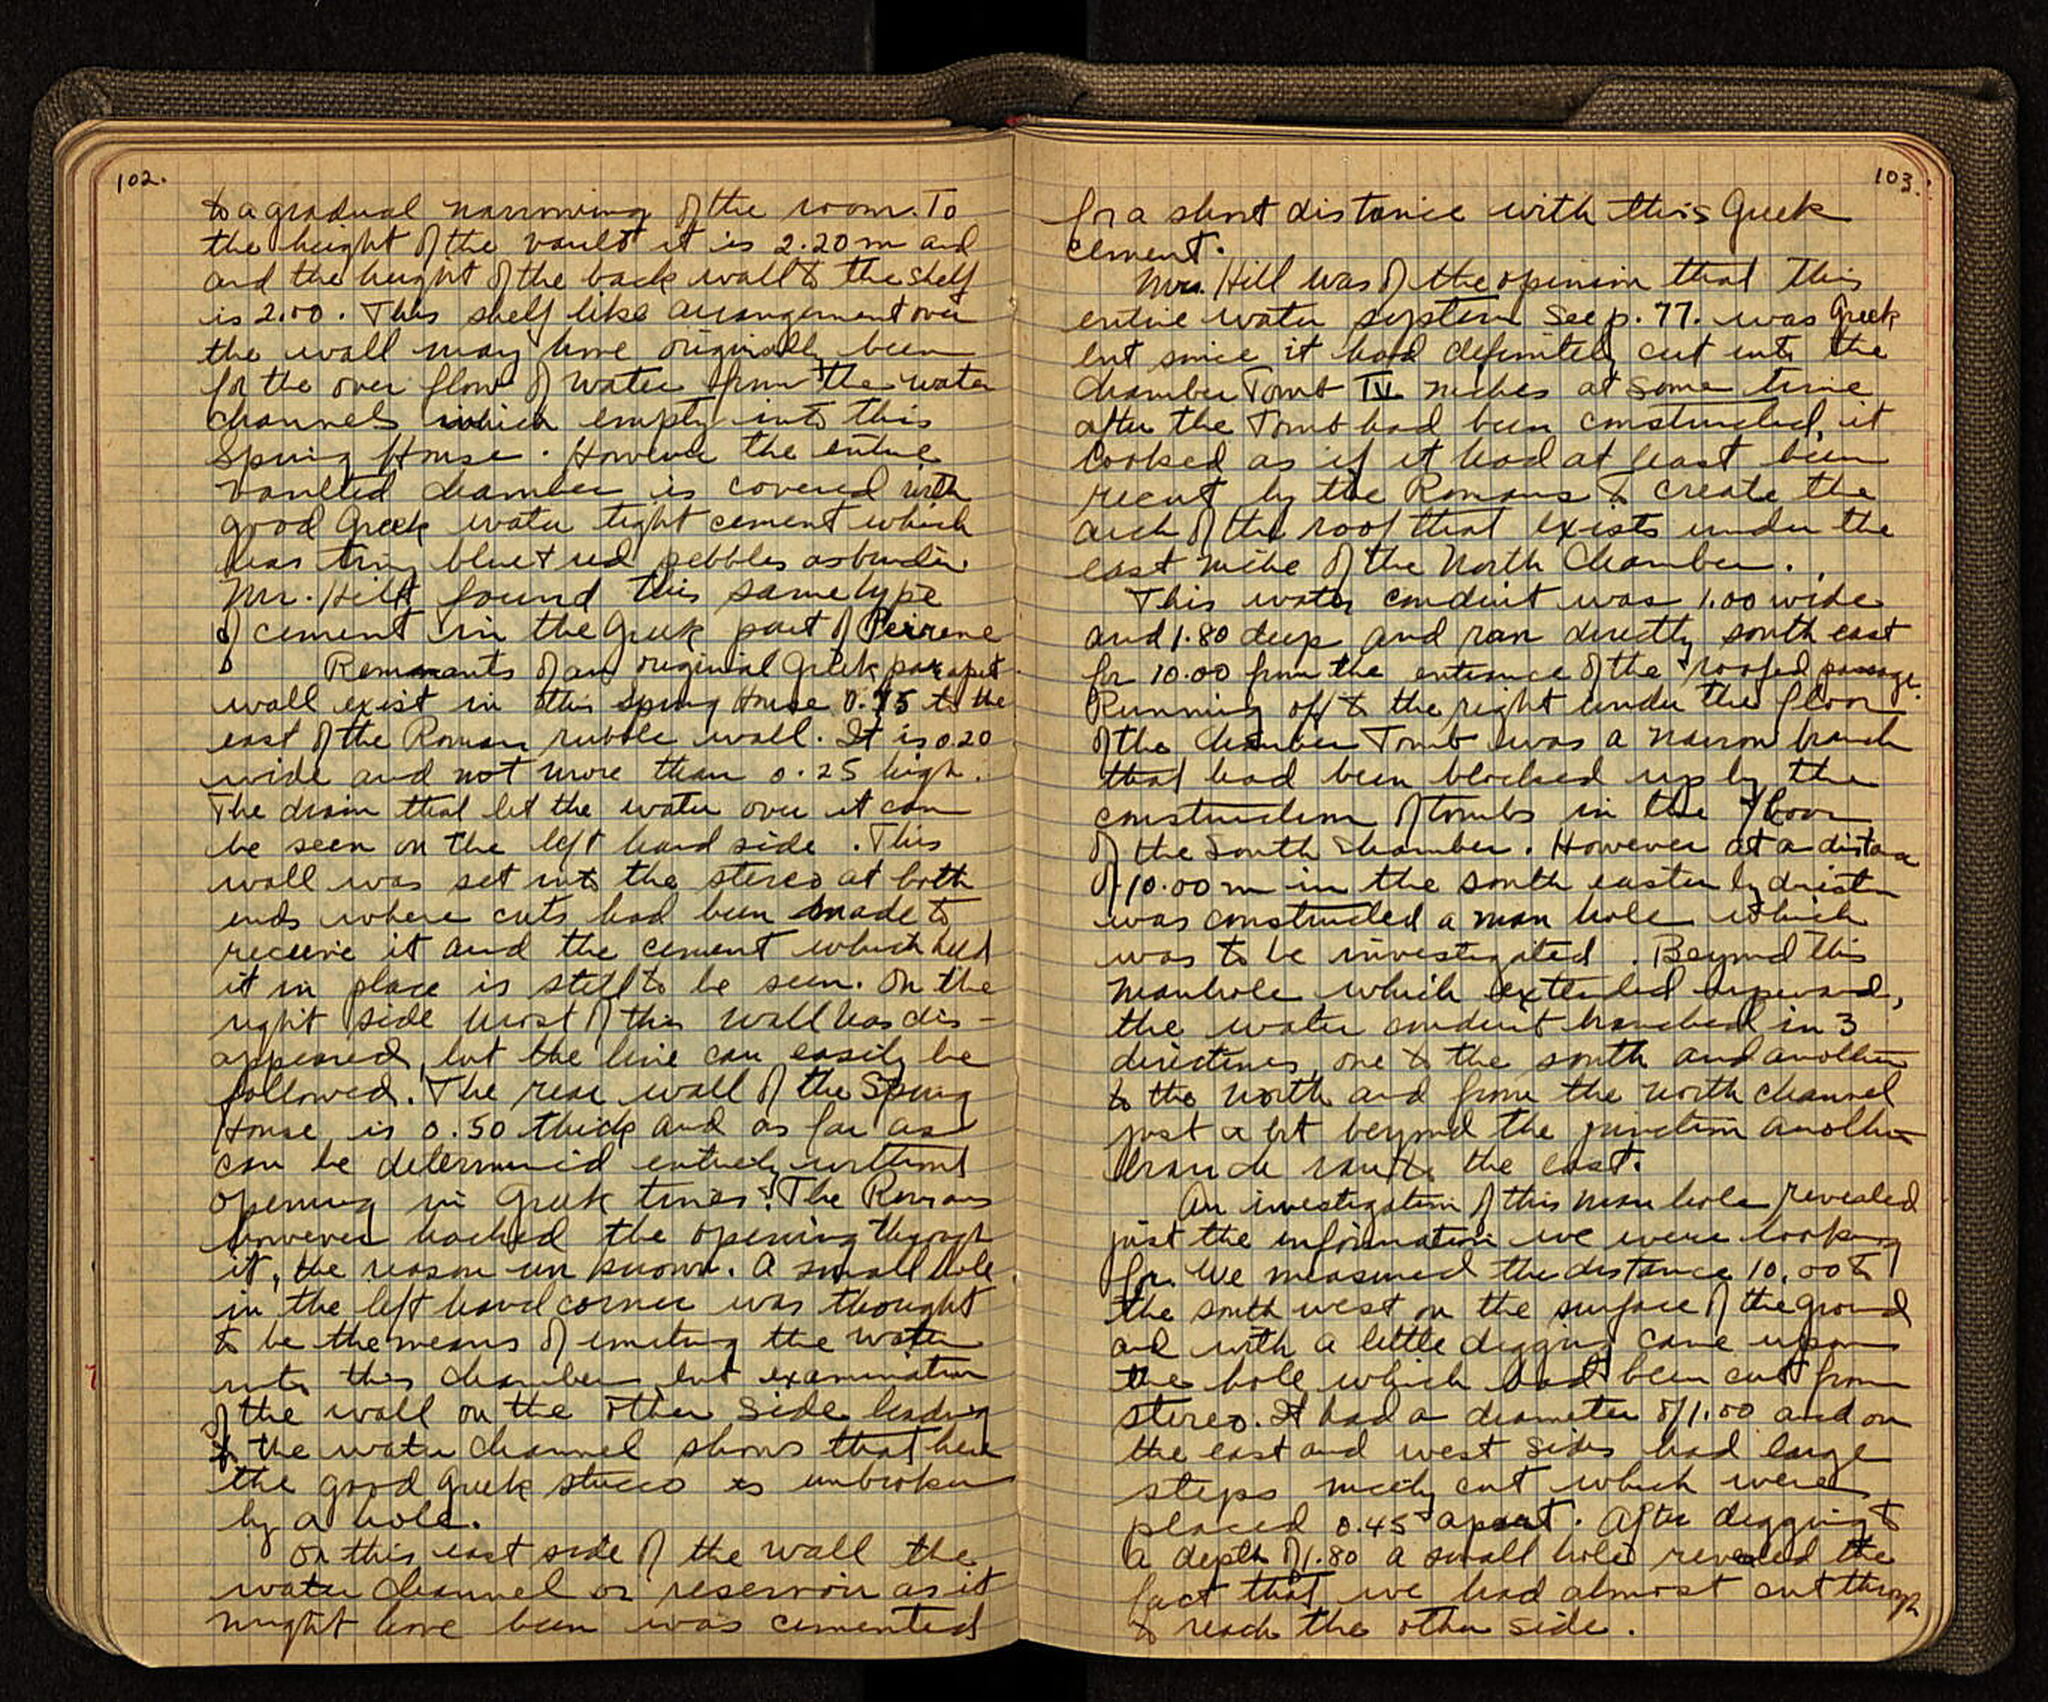 102.
to a gradual narrowing of the room. To
the height of the vault it is 2.20 m and
and the height of the back wall to the shelf
is 2.00. This shelf like arrangement over
the wall may have originally been
for the over flow of water from the water
channels which empty into this
Spring House. However the entire
vaulted chamber is covered with
good Greek water tight cement which
has tiny blue & red pebbles as binder
Mr. Hill found this same type
of cement in the Greek part of Peirene
Remnants of an original Greek parapet
wall exist in this Spring House 0.75 to the
east of the Roman rubble wall. It is 0.20
wide and not more than 0.25 high.
The drain that let the water over it can
be seen on the left hand side. This
wall was set into the stereo at both
ends where cuts had been made to
receive it and the cement which held
it in place is still to be seen. On the
right side most of this wall has dis-
appeared, but the line can easily be
followed. The rear wall of the Spring
House is 0.50 thick and as far as
can be determined entirely without
opening in Greek times. The Romans
however hacked the opening through
it, the reason un known. A small hole
in the left hand corner was thought
to be the means of emitting the water
into this chamber but examination
of the wall on the other side leading
to the water channel shows that here
the good Greek stucco is unbroken
by a hole.
On this east side of the wall the
water channel or reservoir as it
might have been was cemented
103.
for a short distance with this Greek
cement.
Mr. Hill was of the opinion that this
entire water system see p. 77. was Greek
but since it had definitely cut into the
chamber Tomb IV niches at some time
after the Tomb had been constructed, it
looked as if it had at least been
recut by the Romans to create the
arch of the roof that exists under the
east niche of the North Chamber.
This water conduit was 1.00 wide
and 1.80 deep and ran directly south east
for 10.00 from the entrance of the roofed passage.
Running off to the right under the floor
of the Chamber Tomb was a narrow branch
that had been blocked up by the
construction of tombs in the floor
of the South Chamber. However at a distance
of 10.00 m in the south easterly direction
was constructed a man hole which
was to be investigated. Beyond this
manhole which extended upward,
the water conduit branched in 3
directions, one to the south and another
to the north and from the north channel
just a bit beyond the junction another
branch ran to the east.
An investigation of this man hole revealed
just the information we were looking
for. We measured the distance 10.00 to
the south west on the surface of the ground
and with a little digging came upon
the hole which had been cut from
stereo. It had a diameter of 1.00 and on
the east and west sides had large
steps nicely cut which were
placed 0.45 apart. After digging to
a depth of 1.80 a small hole revealed the
fact that we had almost cut through
to reach the other side.